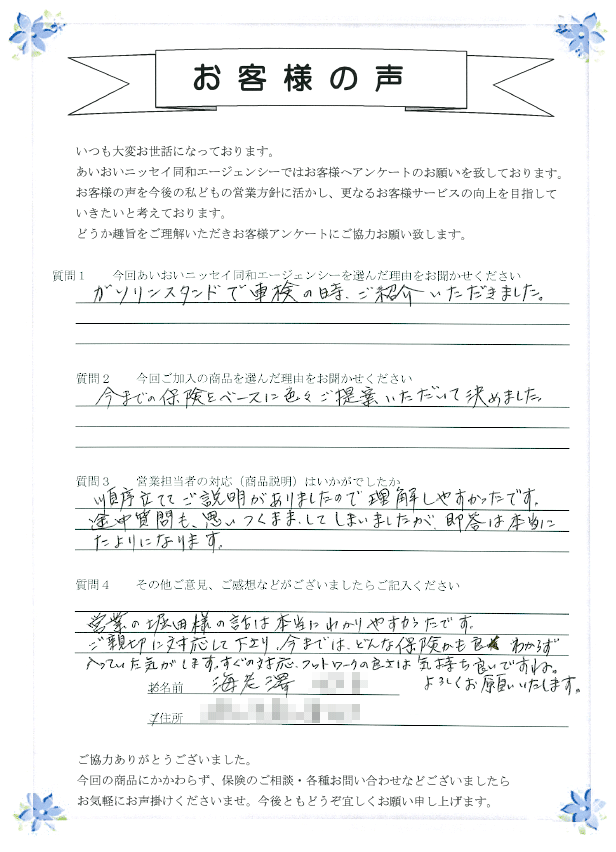 お客様の声
いつも大変お世話になっております。
あいおいニッセイ同和エージェンシーではお客様へアンケートのお願いを致しております。
お客様の声を今後の私どもの営業方針に活かし、更なるお客様サービスの向上を目指して
いきたいと考えております。
どうか趣旨をご理解いただきお客様アンケートにご協力お願い致します。
質問１　今回あいおいニッセイ同和エージェンシーを選んだ理由をお聞かせください
ガソリンスタンドで車検の時、ご紹介いただきました。
質問２　今回ご加入の商品を選んだ理由をお聞かせください
今までの保険をベースに色々ご提案いただいて決めました。
質問３　営業担当者の対応（商品説明）はいかがでしたか
順序立ててご説明がありましたので理解しやすかったです。
途中質問も、思いつくまましてしまいましたが、即答は本当に
たよりになります。
質問４　その他ご意見、ご感想などがございましたらご記入ください
営業の堀田様の話は本当にわかりやすかったです。
ご親切に対応して下さり、今までは、どんな保険かも良くわからず
入っていた気がします。すぐの対応、フットワークの良さは気持ち良いですね。
よろしくお願いいたします。
お名前　海老澤
ご住所
ご協力ありがとうございました。
今回の商品にかかわらず、保険のご相談・各種お問い合わせなどございましたら
お気軽にお声掛けくださいませ。今後ともどうぞ宜しくお願い申し上げます。